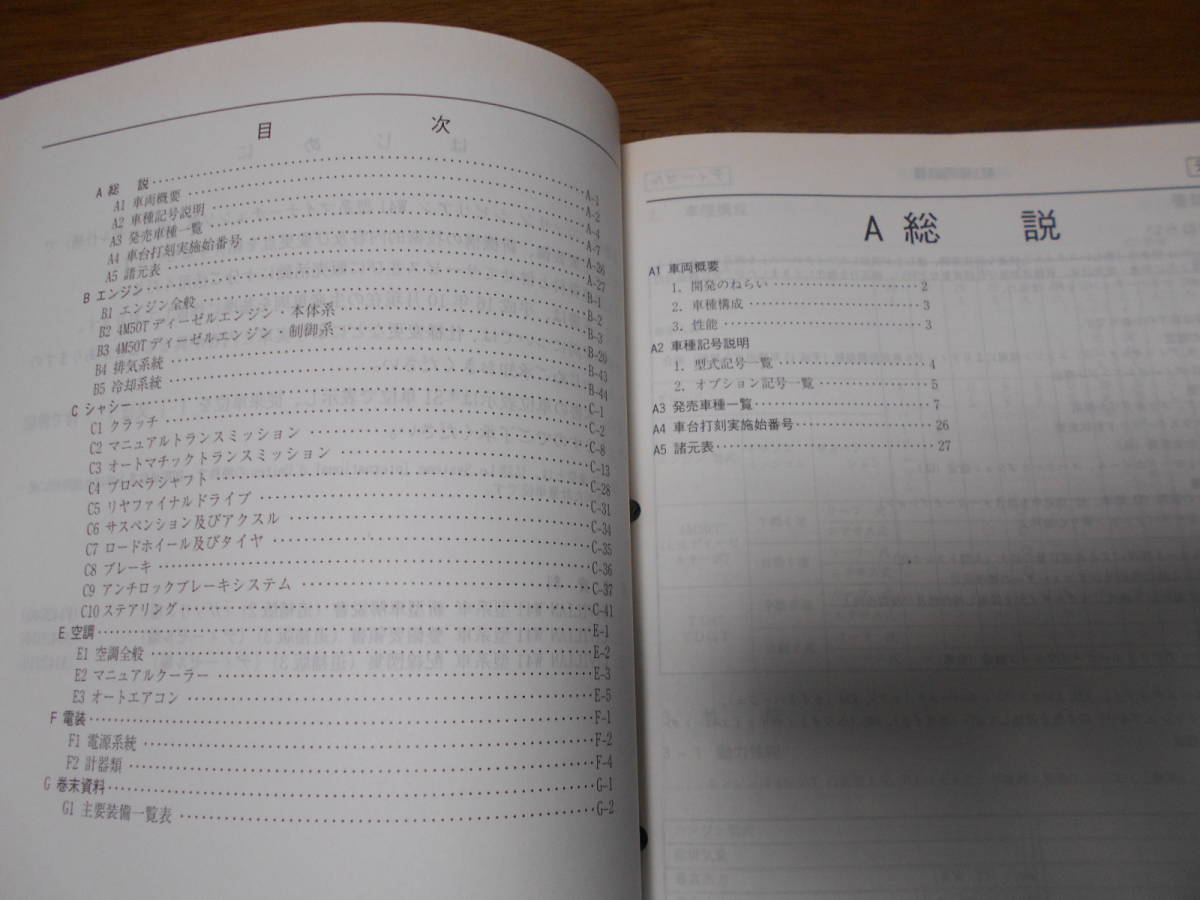 目 次
A 総 説 A-1
A1 車両概要 A-2
A2 車種記号説明 A-4
A3 発売車種一覧 A-7
A4 車台打刻実施始番号 A-26
A5 諸元表 A-27
B エンジン B-1
B1 エンジン全般 B-2
B2 4M50T ディーゼルエンジン・本体系 B-3
B3 4M50T ディーゼルエンジン・制御系 B-20
B4 排気系統 B-43
B5 冷却系統 B-44
C シャシー C-1
C1 クラッチ C-2
C2 マニュアルトランスミッション C-8
C3 オートマチックトランスミッション C-13
C4 プロペラシャフト C-28
C5 リヤファイナルドライブ C-31
C6 サスペンション及びアクスル C-34
C7 ロードホイール及びタイヤ C-35
C8 ブレーキ C-36
C9 アンチロックブレーキシステム C-37
C10 ステアリング C-41
E 空調 E-1
E1 空調全般 E-2
E2 マニュアルクーラー E-3
E3 オートエアコン E-5
F 電装 F-1
F1 電源系統 F-2
F2 計器類 F-4
G 巻末資料 G-1
G1 主要装備一覧表 G-2
A 総 説
A1 車両概要
1. 開発のねらい 2
2. 車種構成 3
3. 性能 3
A2 車種記号説明
1. 型式記号一覧 4
2. オプション記号一覧 5
A3 発売車種一覧 7
A4 車台打刻実施始番号 26
A5 諸元表 27